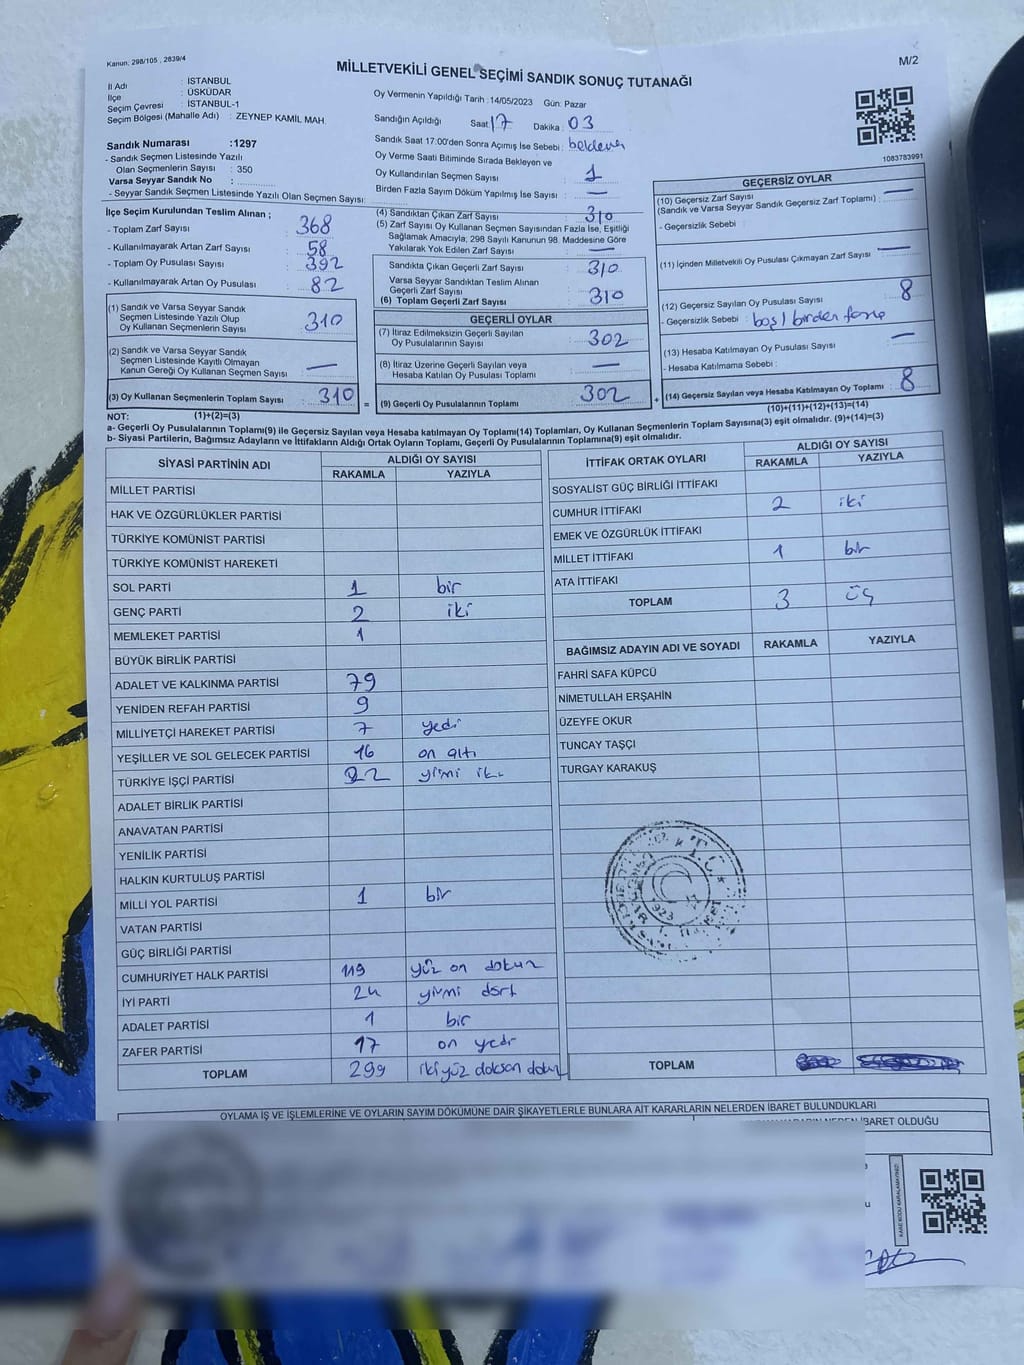 Kanun; 298/105 , 2839/4
MİLLETVEKİLİ GENEL SEÇİMİ SANDIK SONUÇ TUTANAĞI
M/2
İl Adı : İSTANBUL
İlçe : ÜSKÜDAR
Seçim Çevresi : İSTANBUL-1
Seçim Bölgesi (Mahalle Adı) : ZEYNEP KAMİL MAH.
Sandık Numarası :1297
- Sandık Seçmen Listesinde Yazılı
Olan Seçmenlerin Sayısı : 350
Varsa Seyyar Sandık No :
- Seyyar Sandık Seçmen Listesinde Yazılı Olan Seçmen Sayısı:
Oy Vermenin Yapıldığı Tarih :14/05/2023 Gün: Pazar
Sandığın Açıldığı Saat: 17 Dakika : 03
Sandık Saat 17:00'den Sonra Açımış İse Sebebi :
Oy Verme Saati Bitiminde Sırada Bekleyen ve
Oy Kullandırılan Seçmen Sayısı : 1
Birden Fazla Sayım Döküm Yapılmış İse Sayısı : —
1083783991
İlçe Seçim Kurulundan Teslim Alınan ;
- Toplam Zarf Sayısı : 368
- Kullanılmayarak Artan Zarf Sayısı : 58
- Toplam Oy Pusulası Sayısı : 392
- Kullanılmayarak Artan Oy Pusulası : 82
(1) Sandık ve Varsa Seyyar Sandık
Seçmen Listesinde Yazılı Olup
Oy Kullanan Seçmenlerin Sayısı : 310
(2) Sandık ve Varsa Seyyar Sandık
Seçmen Listesinde Kayıtlı Olmayan
Kanun Gereği Oy Kullanan Seçmen Sayısı : —
(3) Oy Kullanan Seçmenlerin Toplam Sayısı : 310
(4) Sandıktan Çıkan Zarf Sayısı : 310
(5) Zarf Sayısı Oy Kullanan Seçmen Sayısından Fazla İse, Eşitliği
Sağlamak Amacıyla; 298 Sayılı Kanunun 98. Maddesine Göre
Yakılarak Yok Edilen Zarf Sayısı : —
Sandıkta Çıkan Geçerli Zarf Sayısı : 310
Varsa Seyyar Sandıktan Teslim Alınan
Geçerli Zarf Sayısı :
(6) Toplam Geçerli Zarf Sayısı 310
GEÇERLİ OYLAR
(7) İtiraz Edilmeksizin Geçerli Sayılan
Oy Pusulalarının Sayısı : 302
(8) İtiraz Üzerine Geçerli Sayılan veya
Hesaba Katılan Oy Pusulası Toplamı : —
= (9) Geçerli Oy Pusulalarının Toplamı : 302
GEÇERSİZ OYLAR
(10) Geçersiz Zarf Sayısı
(Sandık ve Varsa Seyyar Sandık Geçersiz Zarf Toplamı) : —
- Geçersizlik Sebebi :
(11) İçinden Milletvekili Oy Pusulası Çıkmayan Zarf Sayısı : —
(12) Geçersiz Sayılan Oy Pusulası Sayısı : 8
- Geçersizlik Sebebi : boş / birden fazla
(13) Hesaba Katılmayan Oy Pusulası Sayısı : —
- Hesaba Katılmama Sebebi :
+ (14) Geçersiz Sayılan veya Hesaba Katılmayan Oy Toplamı : 8
NOT: (1)+(2)=(3)
(10)+(11)+(12)+(13)=(14)
a- Geçerli Oy Pusulalarının Toplamı(9) ile Geçersiz Sayılan veya Hesaba Katılmayan Oy Toplamı(14) Toplamları, Oy Kullanan Seçmenlerin Toplam Sayısına(3) eşit olmalıdır. (9)+(14)=(3)
b- Siyasi Partilerin, Bağımsız Adayların ve İttifakların Aldığı Ortak Oyların Toplamı, Geçerli Oy Pusulalarının Toplamına(9) eşit olmalıdır.
SİYASİ PARTİNİN ADI ALDIĞI OY SAYISI
RAKAMLA YAZIYLA
MİLLET PARTİSİ
HAK VE ÖZGÜRLÜKLER PARTİSİ
TÜRKİYE KOMÜNİST PARTİSİ
TÜRKİYE KOMÜNİST HAREKETİ
SOL PARTİ 1 bir
GENÇ PARTİ 2 iki
MEMLEKET PARTİSİ 1
BÜYÜK BİRLİK PARTİSİ
ADALET VE KALKINMA PARTİSİ 79
YENİDEN REFAH PARTİSİ 9
MİLLİYETÇİ HAREKET PARTİSİ 7 yedi
YEŞİLLER VE SOL GELECEK PARTİSİ 16 on altı
TÜRKİYE İŞÇİ PARTİSİ 22 yirmi iki
ADALET BİRLİK PARTİSİ
ANAVATAN PARTİSİ
YENİLİK PARTİSİ
HALKIN KURTULUŞ PARTİSİ
MİLLİ YOL PARTİSİ 1 bir
VATAN PARTİSİ
GÜÇ BİRLİĞİ PARTİSİ
CUMHURİYET HALK PARTİSİ 119 yüz on dokuz
İYİ PARTİ 24 yirmi dört
ADALET PARTİSİ 1 bir
ZAFER PARTİSİ 17 on yedi
TOPLAM 299 iki yüz doksan dokuz
İTTİFAK ORTAK OYLARI ALDIĞI OY SAYISI
RAKAMLA YAZIYLA
SOSYALİST GÜÇ BİRLİĞİ İTTİFAKI
CUMHUR İTTİFAKI 2 iki
EMEK VE ÖZGÜRLÜK İTTİFAKI
MİLLET İTTİFAKI 1 bir
ATA İTTİFAKI
TOPLAM 3 üç
BAĞIMSIZ ADAYIN ADI VE SOYADI RAKAMLA YAZIYLA
FAHRİ SAFA KÜPCÜ
NİMETULLAH ERŞAHİN
ÜZEYFE OKUR
TUNCAY TAŞÇI
TURGAY KARAKUŞ
T.C.
1923
TOPLAM
OYLAMA İŞ VE İŞLEMLERİNE VE OYLARIN SAYIM DÖKÜMÜNE DAİR ŞİKAYETLERLE BUNLARA AİT KARARLARIN NELERDEN İBARET BULUNDUKLARI
NEDEN İBARET OLDUĞU
KARE KODU KARALAMAYINIZ!